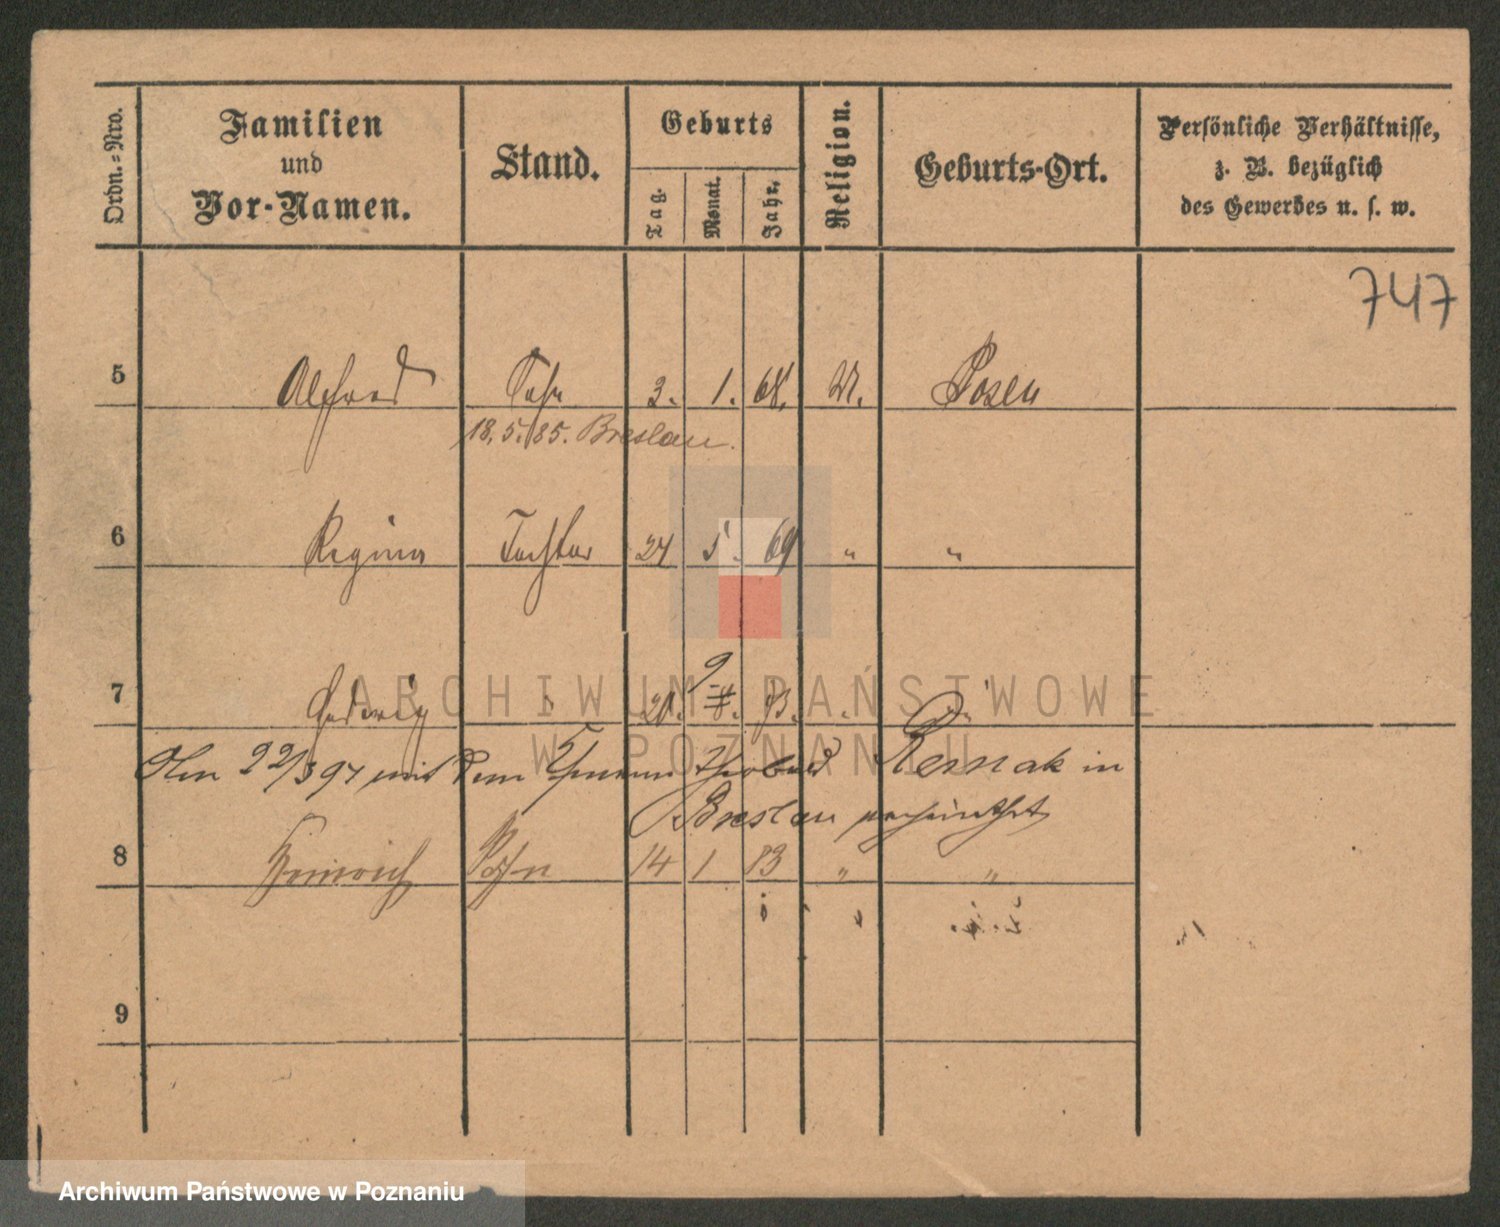 Ordn.=Nro.
Familien
und
Vor-Namen.
Stand.
Geburts
Tag.
Monat.
Jahr.
Religion.
Geburts-Ort.
Persönliche Verhältnisse,
z. B. bezüglich
des Gewerbes u. s. w.
747
5 Alfred Sohn 3. 1. 68. M. Posen
18.5.85. Breslau.
6 Regina Tochter 24 5. 69 " "
7 Hedwig " 20. 9 73. " "
Am 22/3 97 mit dem Remak in
Breslau verheirathet
8 Heinrich Sohn 14 1 83 " "
9
ARCHIWUM PAŃSTWOWE
W POZNANIU
Archiwum Państwowe w Poznaniu